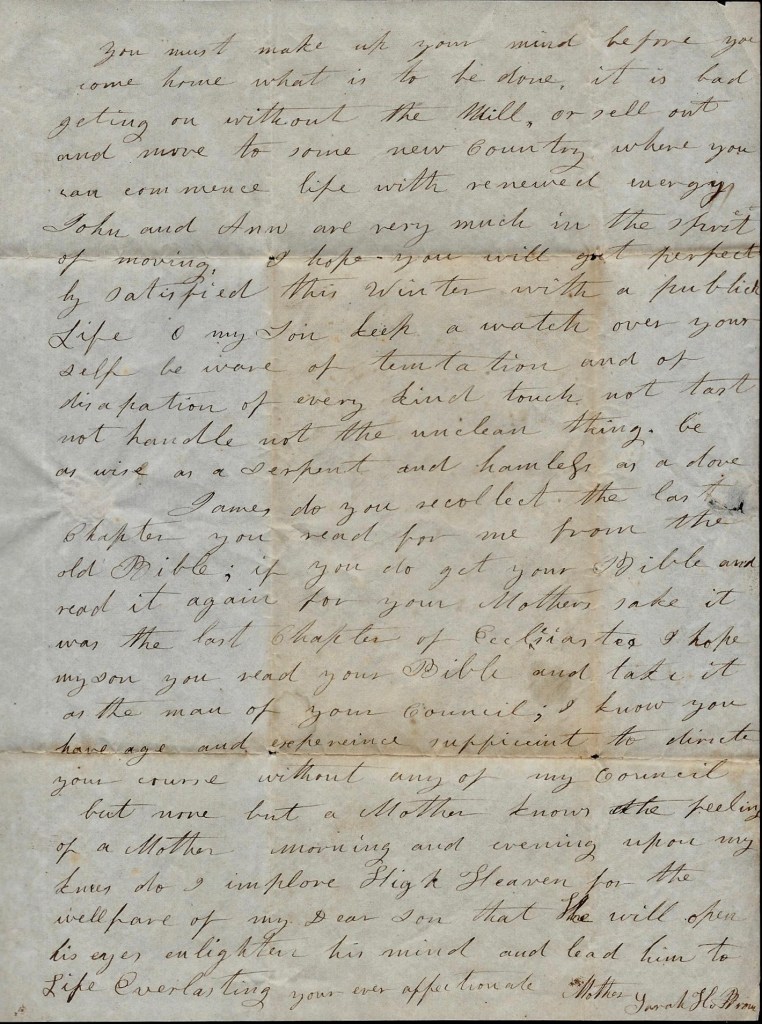 you must make up your mind before you
come home what is to be done, it is bad
geting on without the Mill, or sell out
and move to some new Country where you
can commence life with renewed energy
John and Ann are very much in the spirit
of moving, I hope you will get perfect
ly satisfied this Winter with a publick
Life O my Son keep a watch over your
self be ware of temtation and of
disapation of every kind touch not tast
not handle not the unclean thing. be
as wise as a serpent and hamless as a dove
James do you recollect the last
Chapter you read for me from the
old Bible; if you do get your Bible and
read it again for your Mothers sake it
was the last Chapter of I hope
my son you read your Bible and take it
as the man of your Council; I know you
have age and expereince suffiscint to directe
your course without any of my Council
but none but a Mother knows the feeling
of a Mother morning and evening upon my
knees do I implore High Heaven for the
wellfare of my Dear Son that He will open
his eyes enlighten his mind and lead him to
Life Everlasting your ever affectionate Mother Sarah